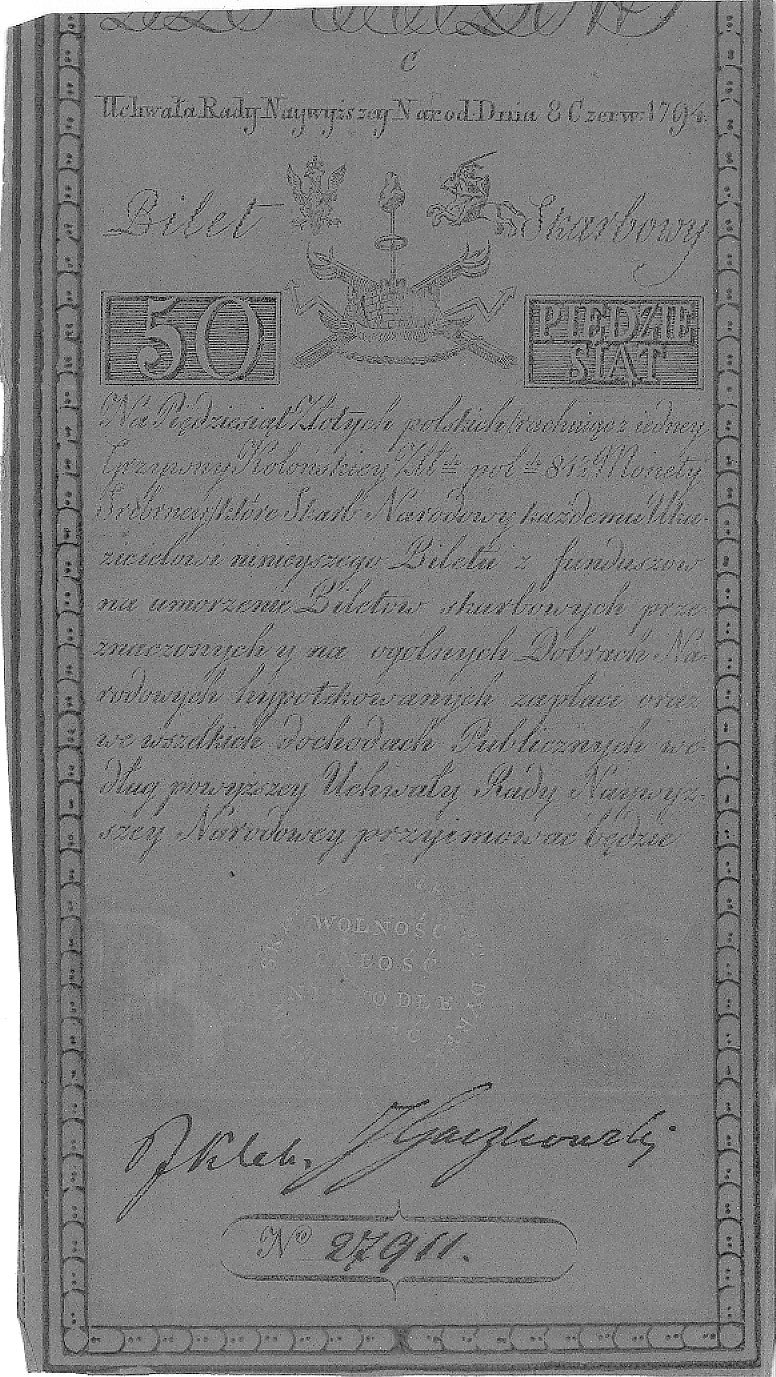 C
Uchwała Rady Naywyższey Narod. Dnia 8 Czerw: 1794.
Bilet Skarbowy
50 PIĘDZIE
SIĄT
Na Piędziesiąt Złotych polskich rachuiąc z iedney
Grzywny Kolońskiey Zł:ch pol:ch 84½ Monety
Srebrney, które Skarb Narodowy każdemu Uka-
zicielowi ninieyszego Biletu z funduszow
na umorzenie Biletow skarbowych prze
znaczonych y na ogolnych Dobrach Na-
rodowych hypotekowanych zapłaci oraz
we wszelkich dochodach Publicznych we-
dług powyższey Uchwały Rady Naywyż-
szey Narodowey przyimować będzie
WOLNOŚĆ
CAŁOŚĆ
NIEPODLE
No 27911.